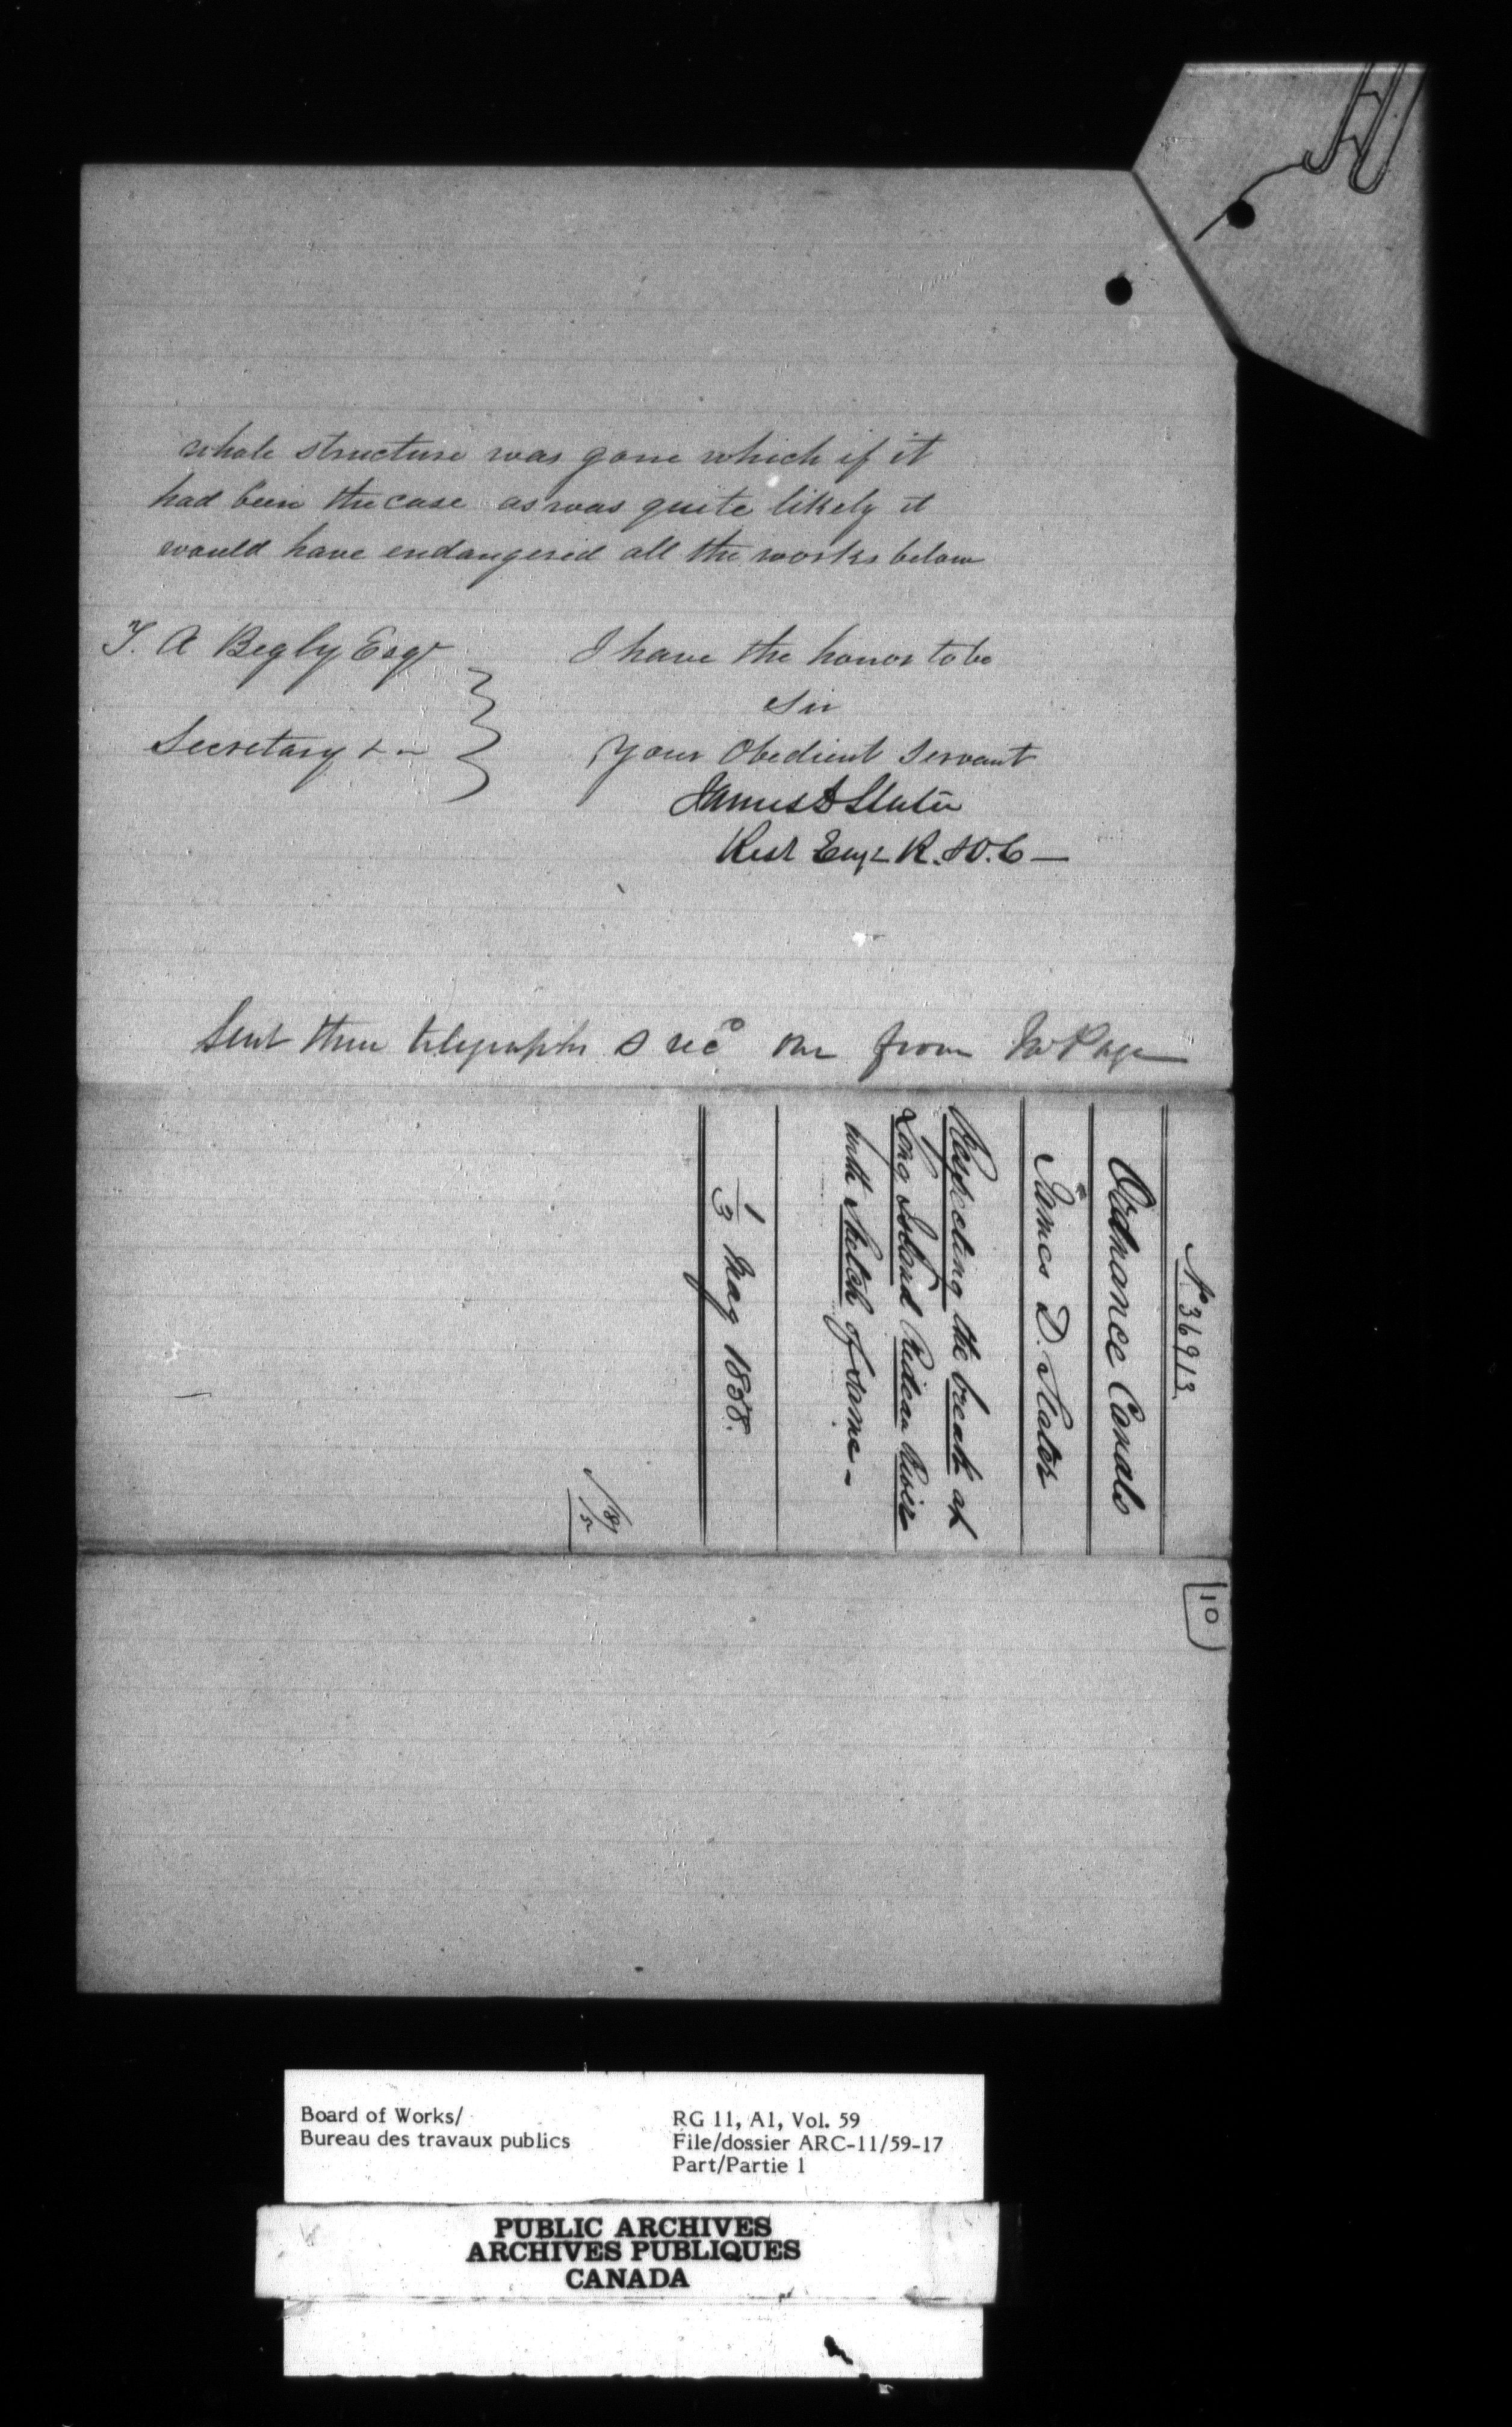 whole structure was gone which if it
had been the case as was quite likely it
would have endangered all the works below
T. A Begly Esqr
Secretary &c
I have the honor to be
Sir
Your Obedient Servant
James D Slater
Rest Engr R. & O. C—
Sent three telegraphs & recd one from Mr Page
No 36913
Ordnance Canals
James D. Slater
Respecting the break at
Long Island Rideau River
with Sketch of same -
1/3 May 1858.
10
Board of Works/
Bureau des travaux publics
RG 11, A1, Vol. 59
File/dossier ARC-11/59-17
Part/Partie 1
PUBLIC ARCHIVES
ARCHIVES PUBLIQUES
CANADA